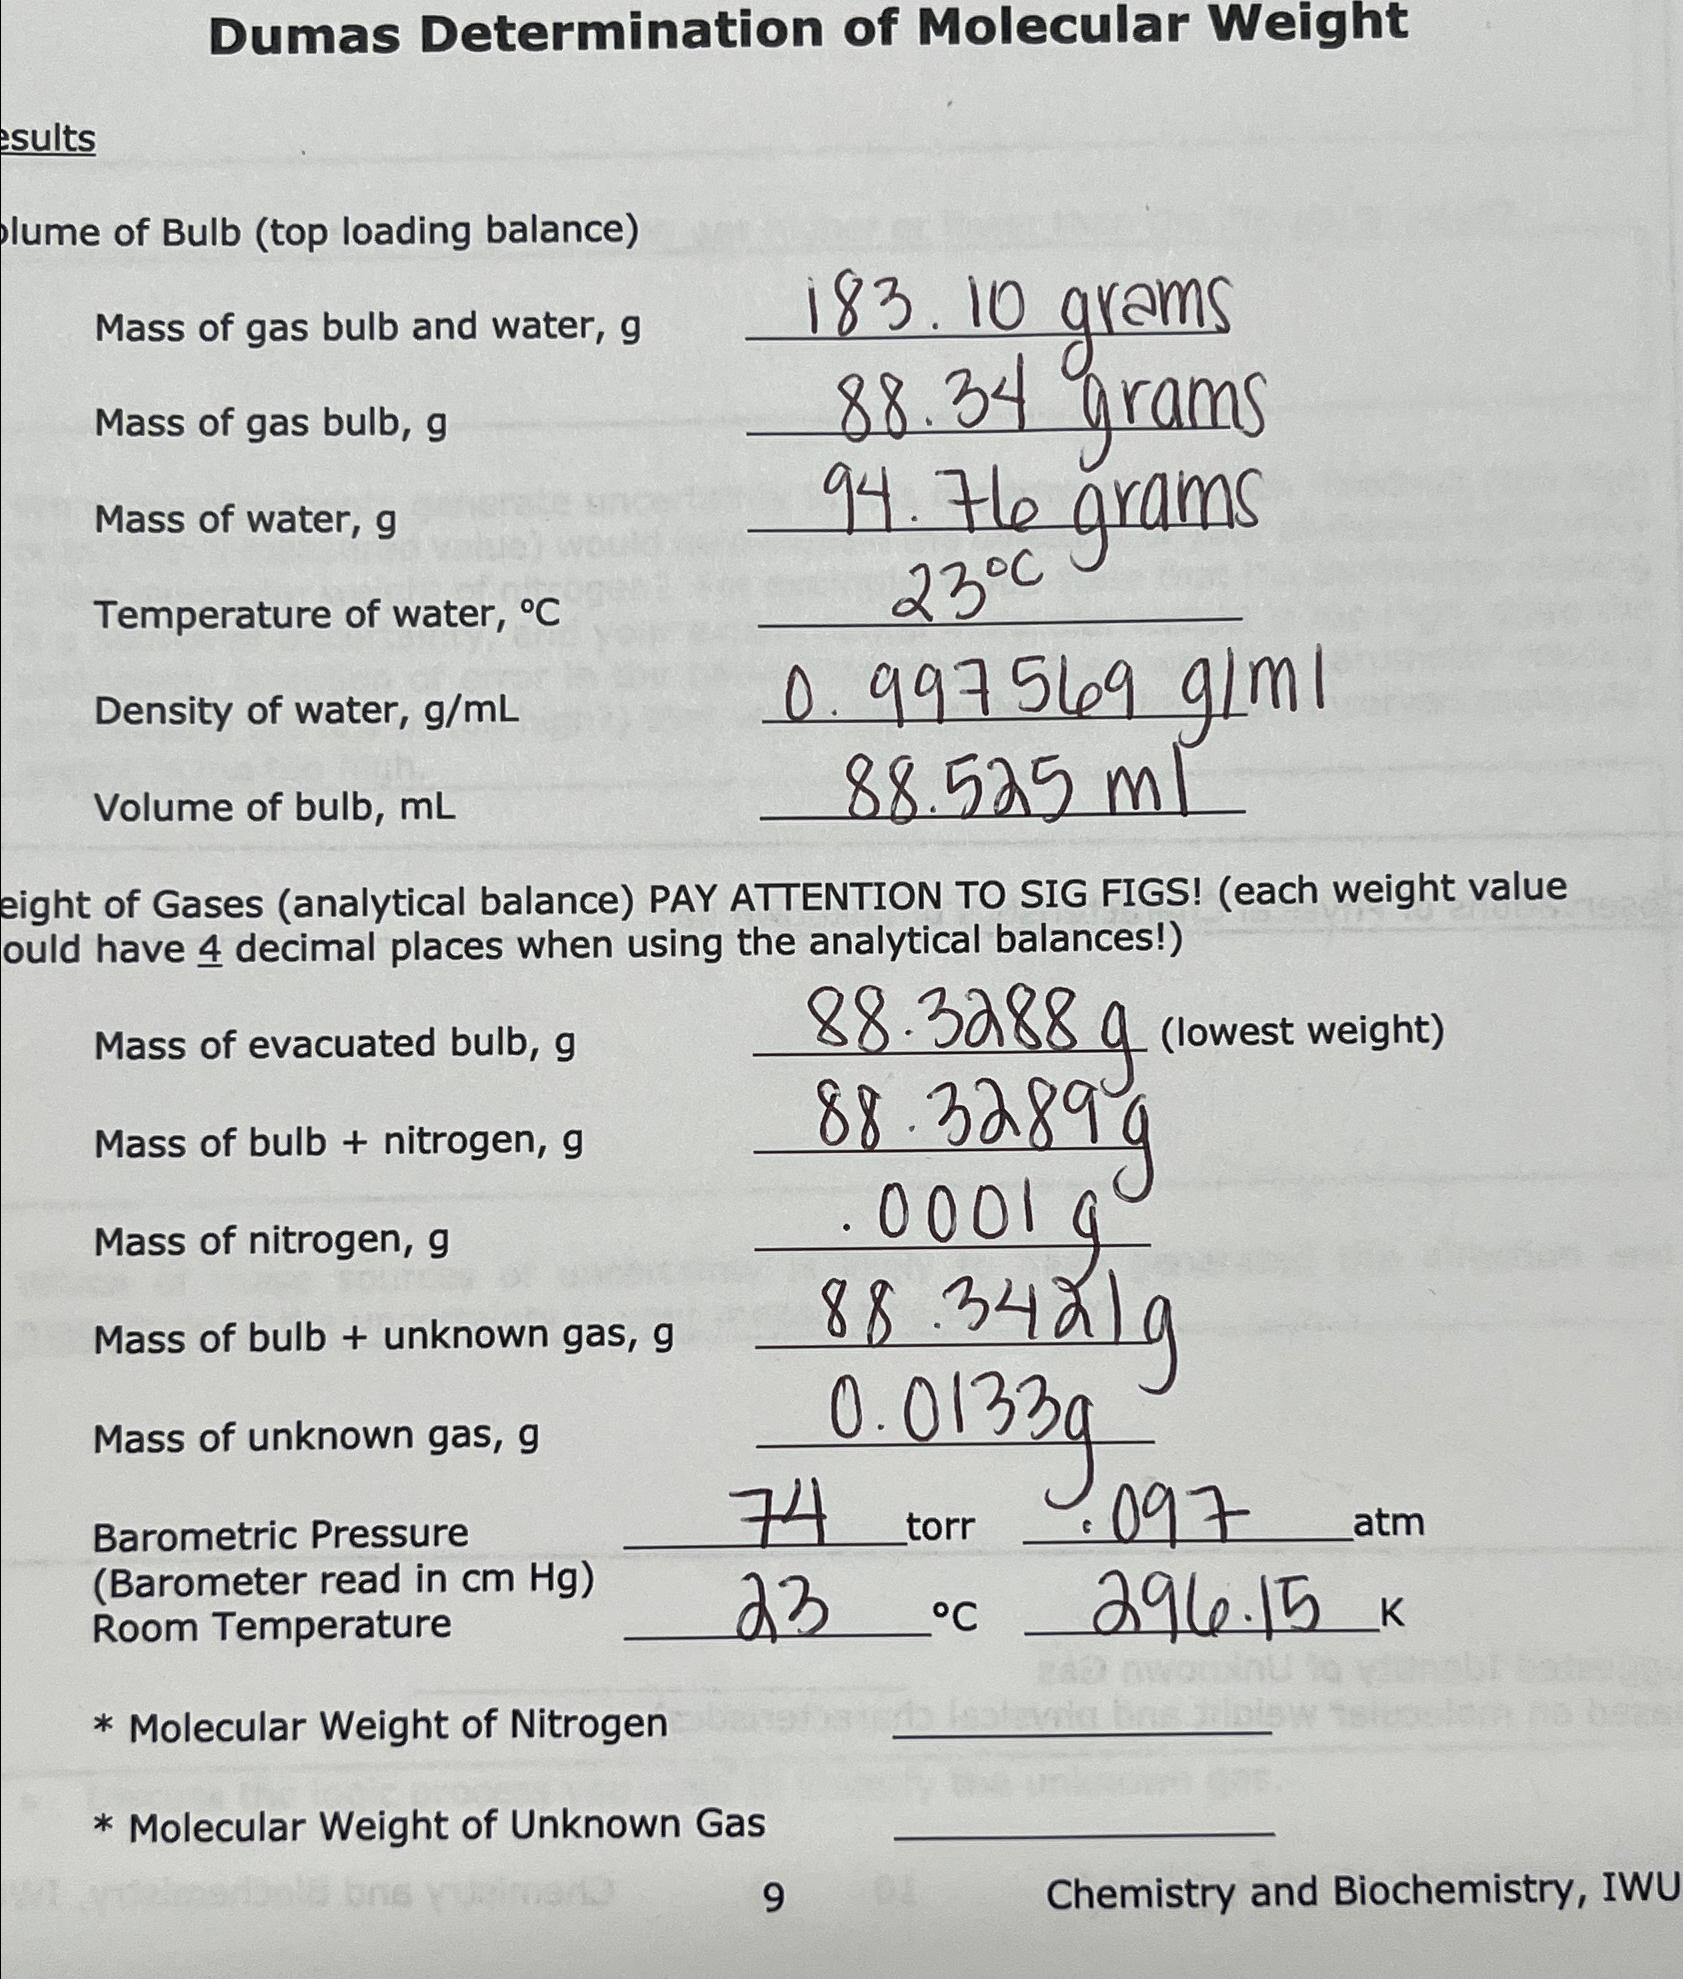 Dumas Determination of Molecular Weight
esults
olume of Bulb (top loading balance)
Mass of gas bulb and water, g 183.10 grams
Mass of gas bulb, g 88.34 grams
Mass of water, g 94.76 grams
Temperature of water, ºC 23°C
Density of water, g/mL 0.997569 g/ml
Volume of bulb, mL 88.525 ml
eight of Gases (analytical balance) PAY ATTENTION TO SIG FIGS! (each weight value
ould have 4 decimal places when using the analytical balances!)
Mass of evacuated bulb, g 88.3288 g (lowest weight)
Mass of bulb + nitrogen, g 88.3289 g
Mass of nitrogen, g .0001 g
Mass of bulb + unknown gas, g 88.3421g
Mass of unknown gas, g 0.0133g
Barometric Pressure 74 torr .097 atm
(Barometer read in cm Hg)
Room Temperature 23 ºC 296.15 K
* Molecular Weight of Nitrogen
* Molecular Weight of Unknown Gas
9 Chemistry and Biochemistry, IWU